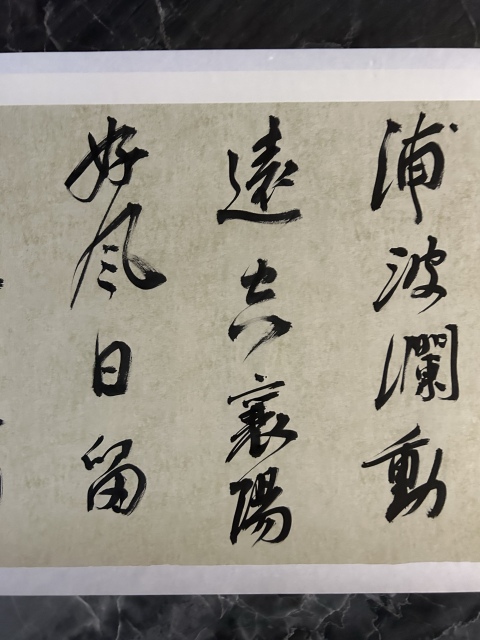 浦波瀾動
遠空襄陽
好風日留